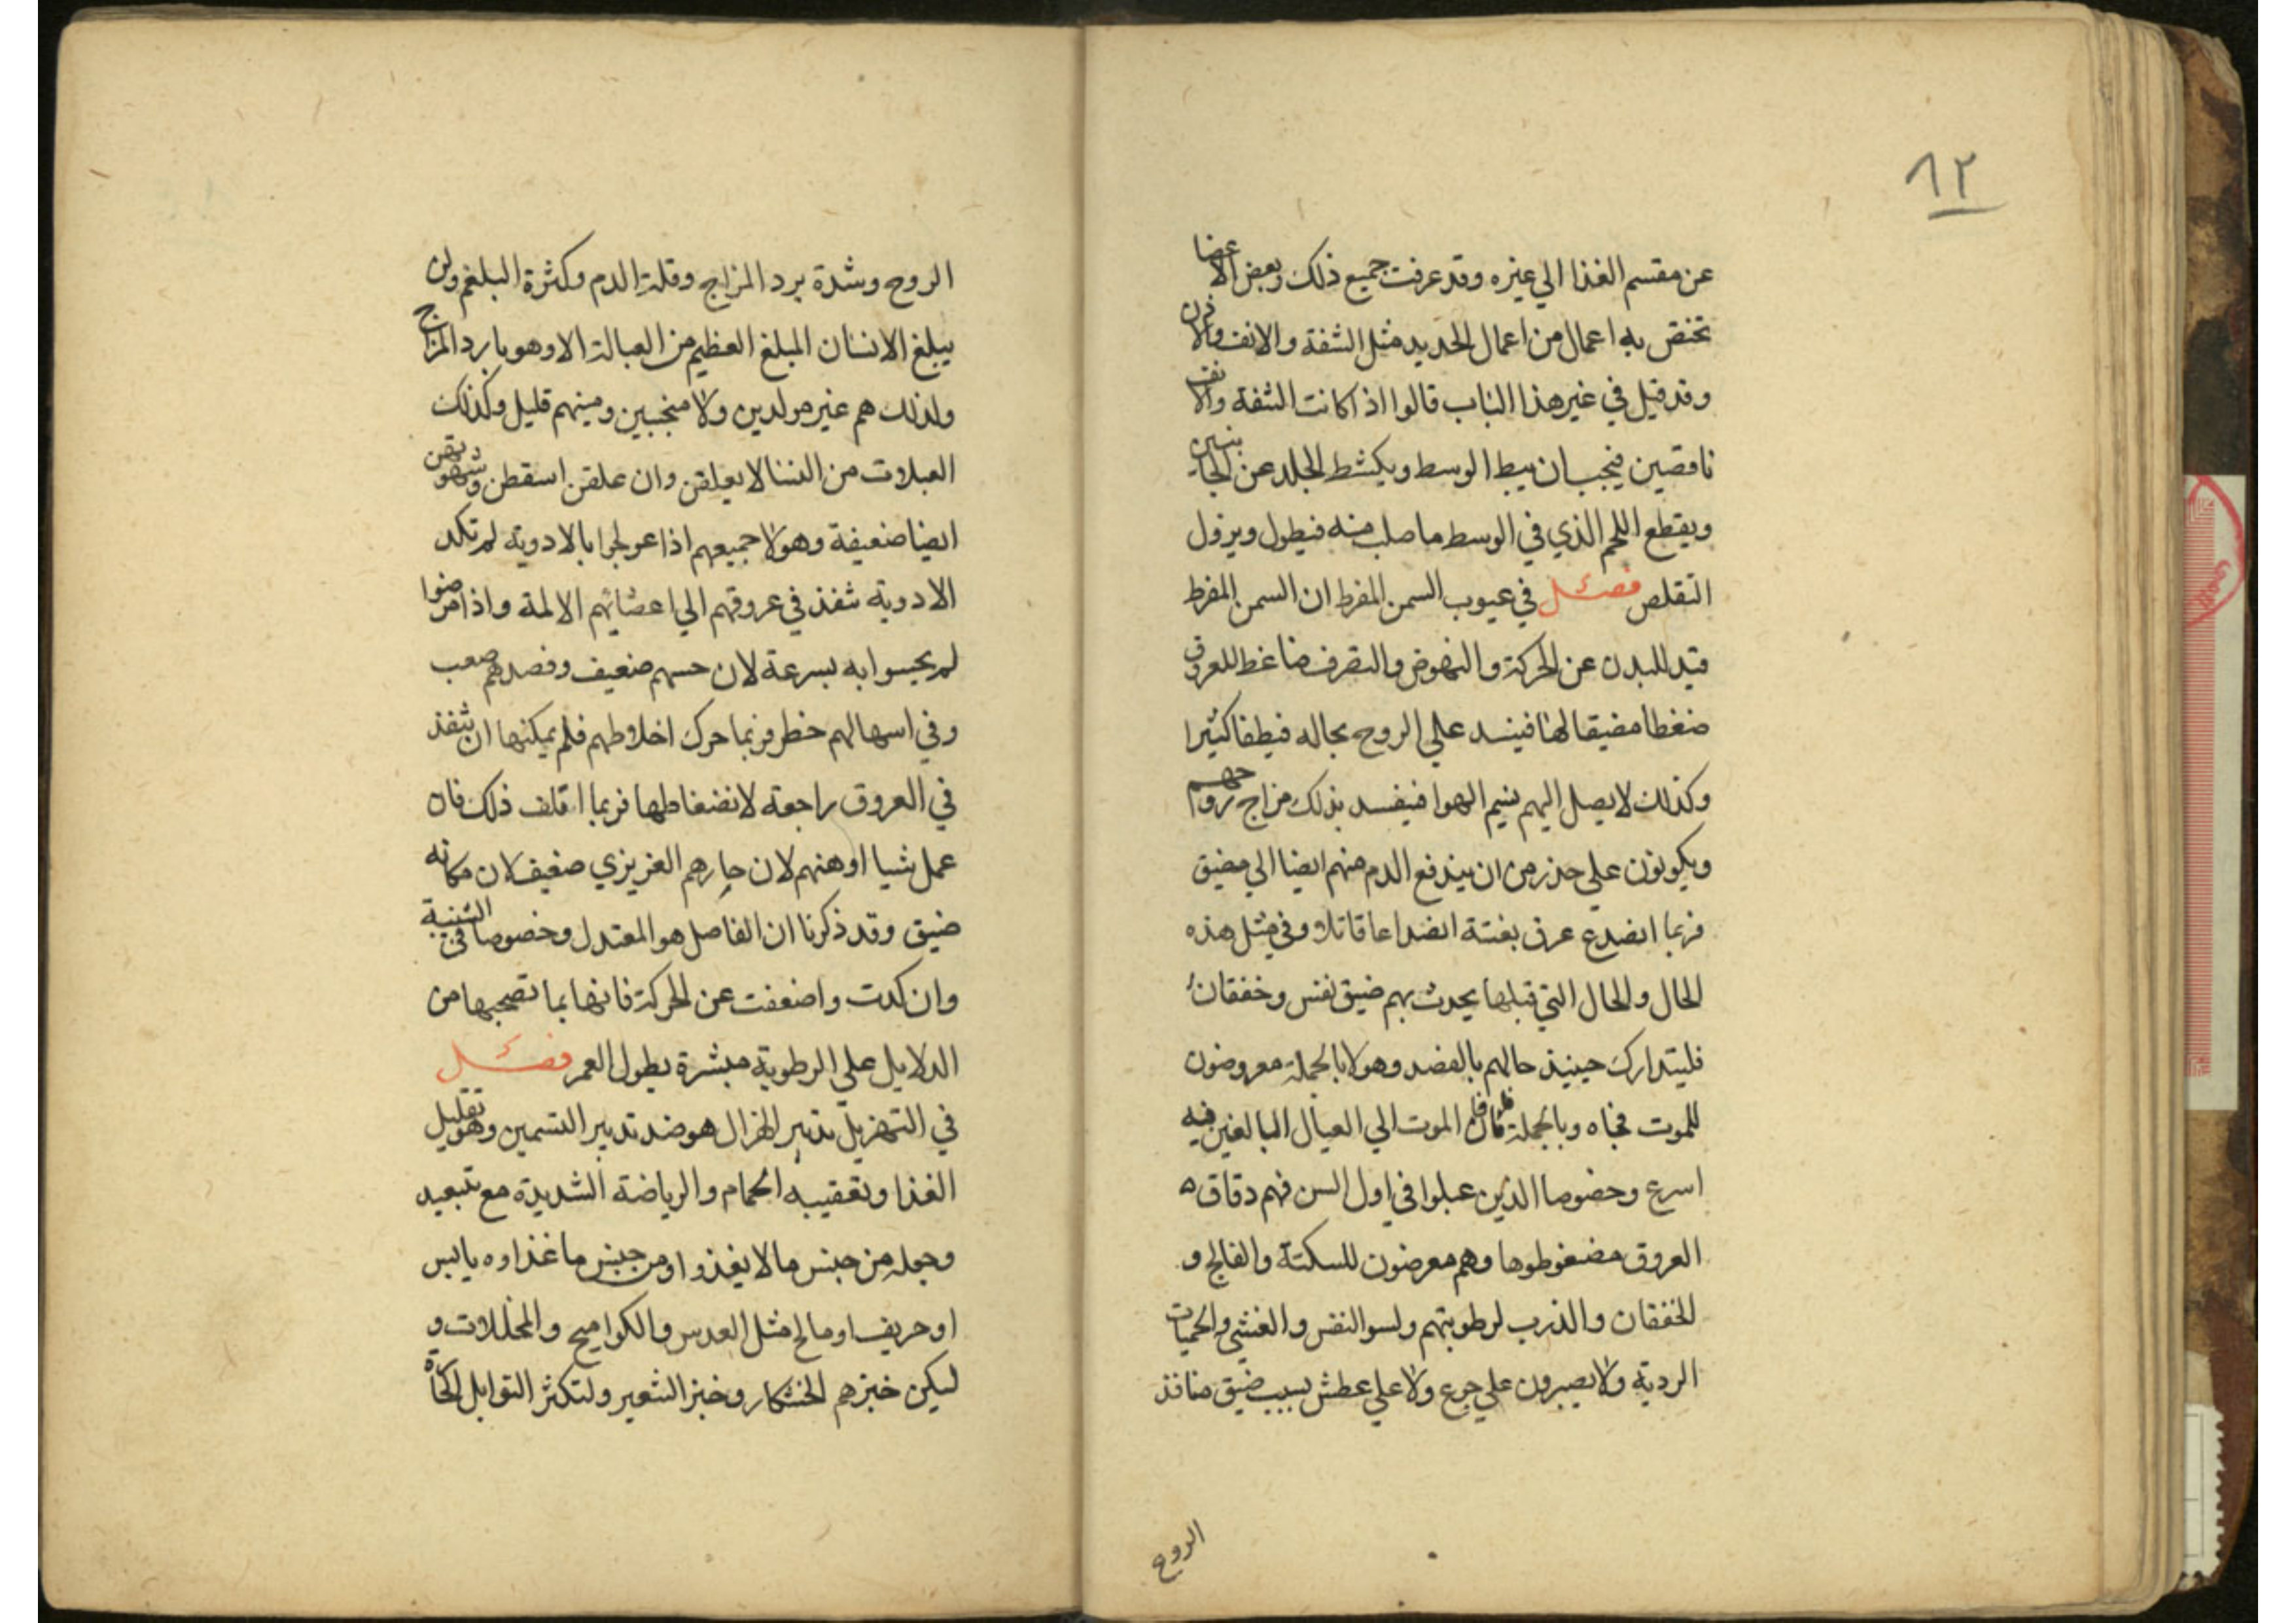 ١٢
عن مقسم الغذا الي غيره وقد عرفت جميع ذلك وبعض الاعضا
تختص به اعمال من اعمال الحديد مثل الشفة والانف والاذن
وقد قيل في غير هذا الباب قالوا اذا كانت الشفة والانف
ناقصين فيجب ان يبط الوسط ويكشط الجلد عن الجانبين
ويقطع اللحم الذي في الوسط ما صلب منه فيطول ويزول
التقلص فصل في عيوب السمن المفرط ان السمن المفرط
قيد للبدن عن الحركة والنهوض والتصرف ضاغط للعروق
ضغطا مضيقا لها فينسد علي الروح مجاله فيطفا كثيرا
وكذلك لا يصل اليهم نسيم الهوا فيفسد بذلك مزاج روحهم
ويكونون علي حذر من ان يندفع الدم منهم ايضا الي مضيق
فربما انصدع عرق بغتة انصداعا قاتلا وفي مثل هذه
الحال والحال التي قبلها يحدث بهم ضيق نفس وخفقان
فليتدارك حينيذ حالهم بالفصد وهولا بالجملة معرضون
للموت فجاه وبالجملة فان الموت الي العبال البالغين فيه
اسرع وخصوصا الذين عبلوا في اول السن فهم دقاق
العروق مضغوطوها وهم معرضون للسكتة والفالج و
الخفقان والذرب لرطوبتهم ولسو النفس والغشي والحميات
الردية ولا يصبرون علي جوع ولا علي عطش بسبب ضيق منافذ
الروح
الروح وشدة برد المزاج وقلة الدم وكثرة البلغم ولن
يبلغ الانسان المبلغ العظيم من العبالة الا وهو بارد المزاج
ولذلك هم غير مولدين ولا منجبين ومنيهم قليل وكذلك
العبلات من النسا لا يعلقن وان علقن اسقطن وشهوتهن
ايضا ضعيفة وهولا جميعهم اذا عولجوا بالادوية لم تكد
الادوية تنفذ في عروقهم الي اعضائهم الالمة واذا مرضوا
لم يحسوا به بسرعة لان حسهم ضعيف وفصدهم صعب
وفي اسهالهم خطر فربما حرك اخلاطهم فلم يمكنها ان تنفذ
في العروق راجعة لانضغاطها فربما اتلف ذلك فان
عمل شيا اوهنهم لان حارهم الغريزي ضعيف لان مكانه
ضيق وقد ذكرنا ان الفاضل هو المعتدل وخصوصا في
وان كدت واضعفت عن الحركة فانها بما تصحبها من
الدلايل علي الرطوبة مبشرة بطول العمر فصل
في التهزيل تدبير الهزال هو ضد تدبير التسمين وهو تقليل
الغذا وتعقيبه الحمام والرياضة الشديدة مع تبعيد
وجعله من جنس ما لا يغذوا ومن جنس ما غذاوه يابس
او حريف او مالح مثل العدس والكواميح والمخللات و
ليكن خبزهم الخشكار وخبز الشعير ولتكثر التوابل الحارة